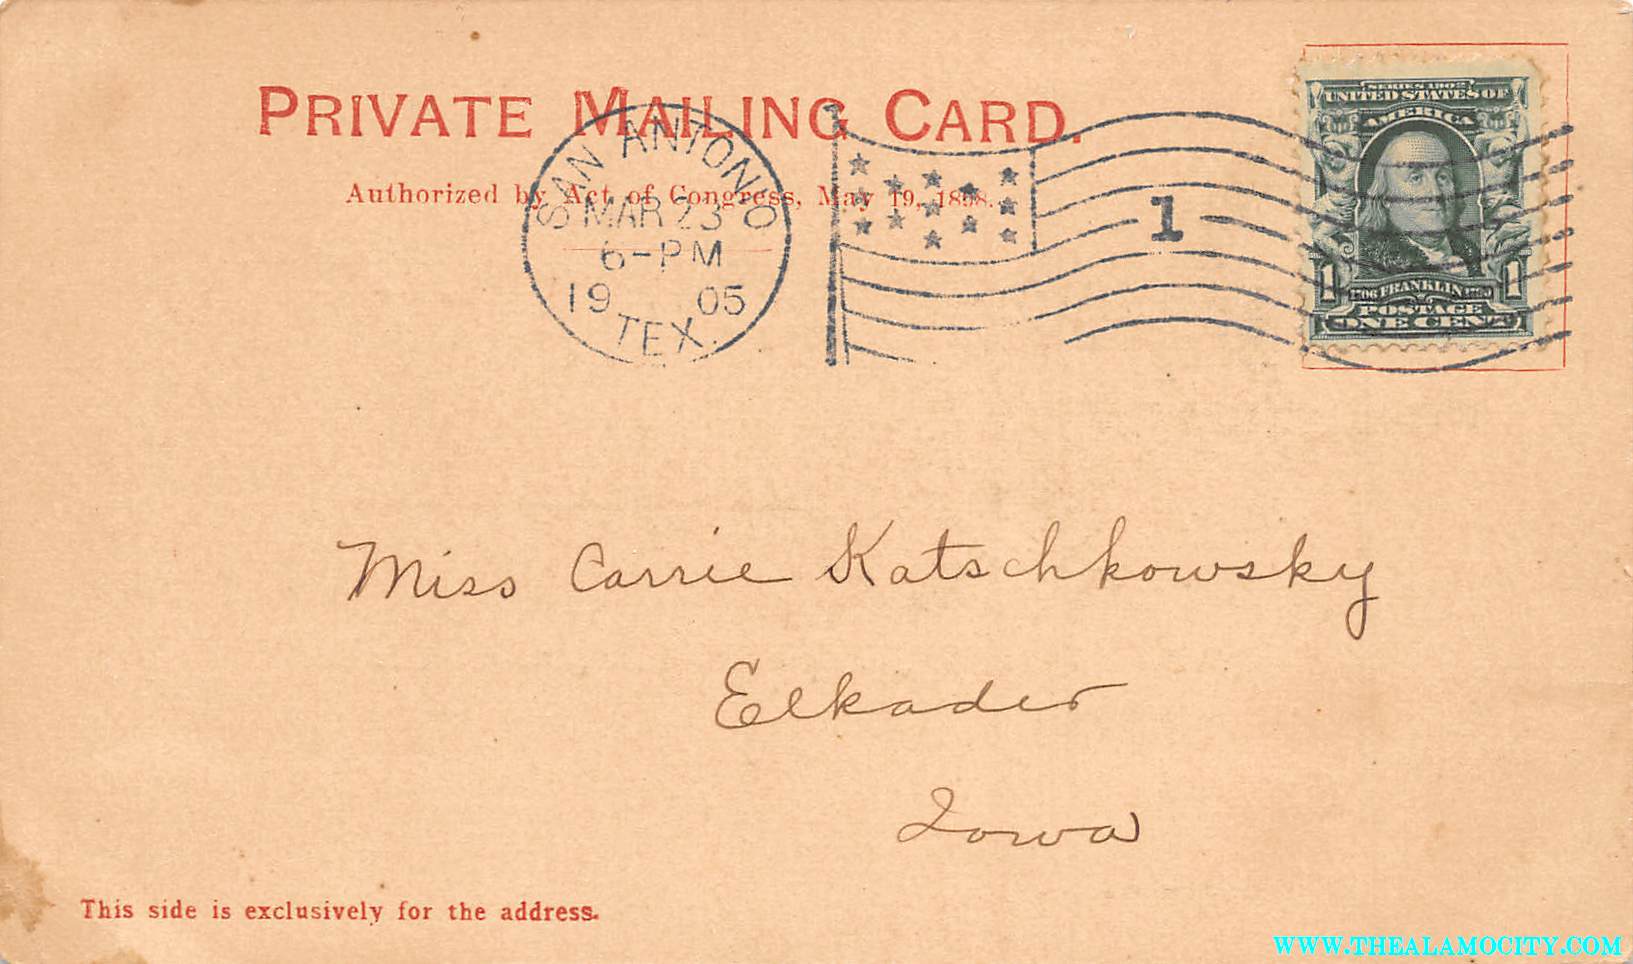 PRIVATE MAILING CARD.
Authorized by Act of Congress, May 19, 1898.
SAN ANTONIO
MAR 23
6-PM
19 05
TEX.
1
SERIES 1902
UNITED STATES OF
AMERICA
1 1
1706 FRANKLIN 1790
POSTAGE
ONE CENT
Miss Carrie Katschkowsky
Elkader
Iowa
This side is exclusively for the address.
WWW.THEALAMOCITY.COM